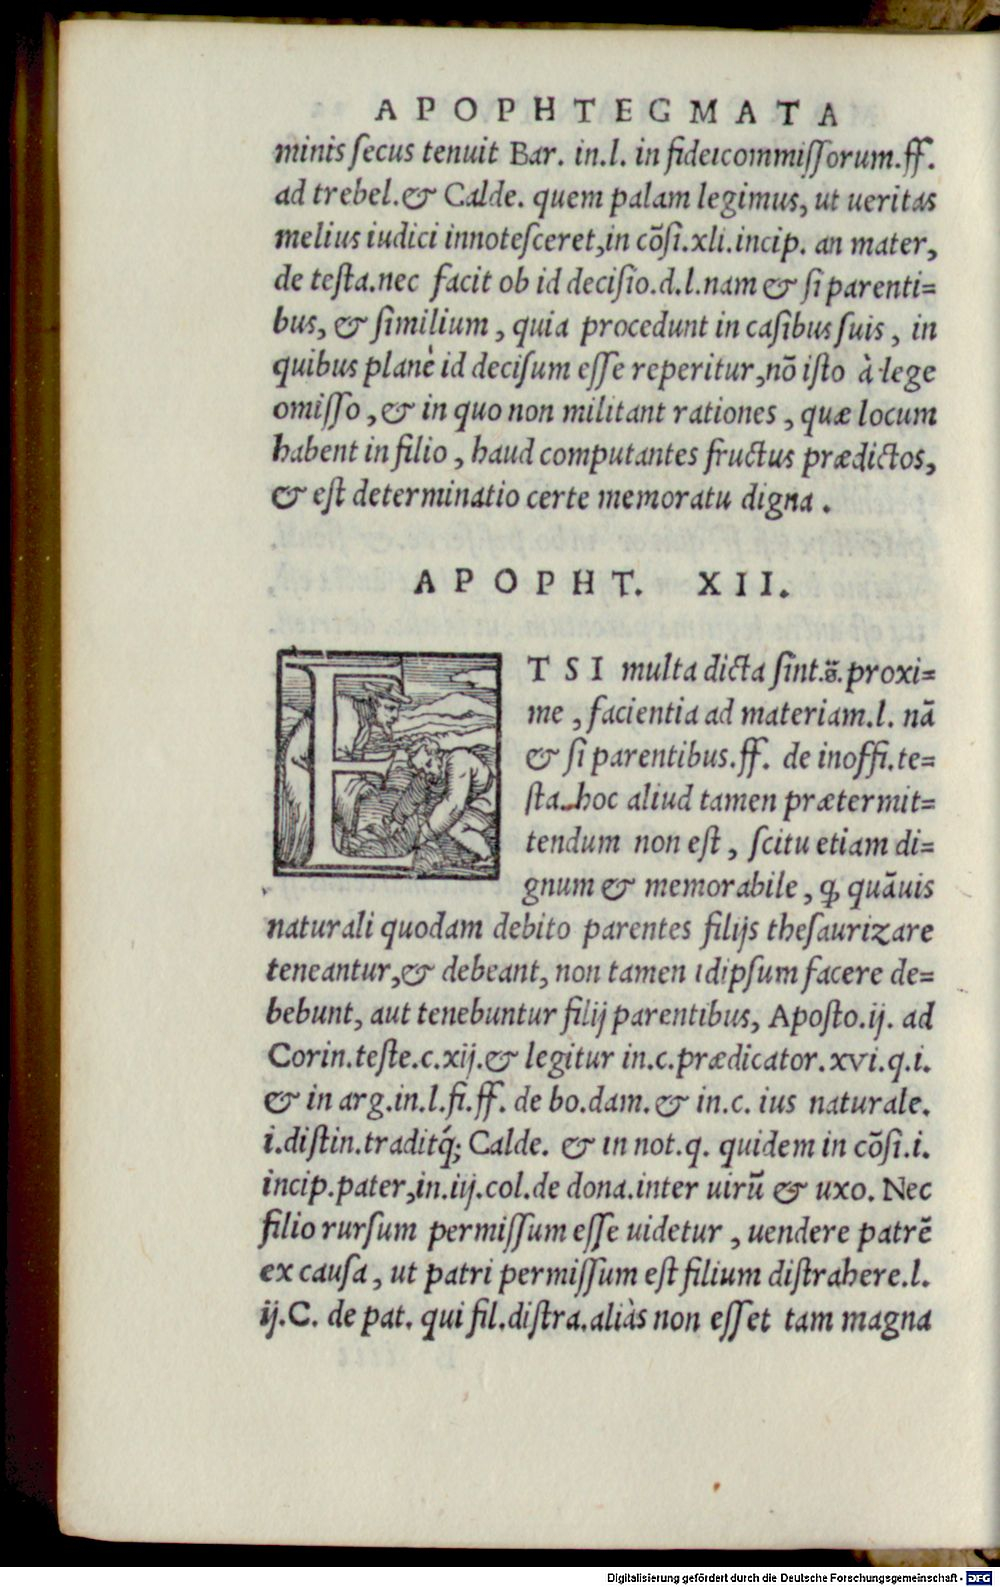 APOPHTEGMATA
minis ſecus tenuit Bar. in.l. in fideicommiſſorum.ff.
ad trebel.& Calde. quem palam legimus, ut ueritas
melius iudici innoteſceret,in cõſi.xli.incip. an mater,
de teſta.nec facit ob id deciſio.d.l.nam & ſi parenti=
bus, & ſimilium, quia procedunt in caſibus ſuis, in
quibus planè id deciſum eſſe reperitur,nõ iſto à lege
omiſſo, & in quo non militant rationes, quæ locum
habent in filio, haud computantes fructus prædictos,
& eſt determinatio certe memoratu digna.
APOPHT. XII.
ETSI multa dicta ſint.s̃.proxi=
me, facientia ad materiam.l. nã
& ſi parentibus.ff. de inoffi.te=
ſta. hoc aliud tamen prætermit=
tendum non eſt, ſcitu etiam di=
gnum & memorabile, ꝙ quãuis
naturali quodam debito parentes filijs theſaurizare
teneantur,& debeant, non tamen idipſum facere de=
bebunt, aut tenebuntur filij parentibus, Apoſto.ij. ad
Corin.teſte.c.xij.& legitur in.c.prædicator.xvi.q.i.
& in arg.in.l.fi.ff. de bo.dam.& in.c. ius naturale.
i.diſtin.traditq́; Calde. & in not.q. quidem in cõſi.i.
incip.pater,in.iij.col.de dona.inter uirũ & uxo. Nec
filio rurſum permiſſum eſſe uidetur, uendere patrẽ
ex cauſa, ut patri permiſſum eſt filium diſtrahere.l.
ij.C. de pat. qui fil.diſtra.aliàs non eſſet tam magna
Digitalisierung gefördert durch die Deutsche Forschungsgemeinschaft - DFG